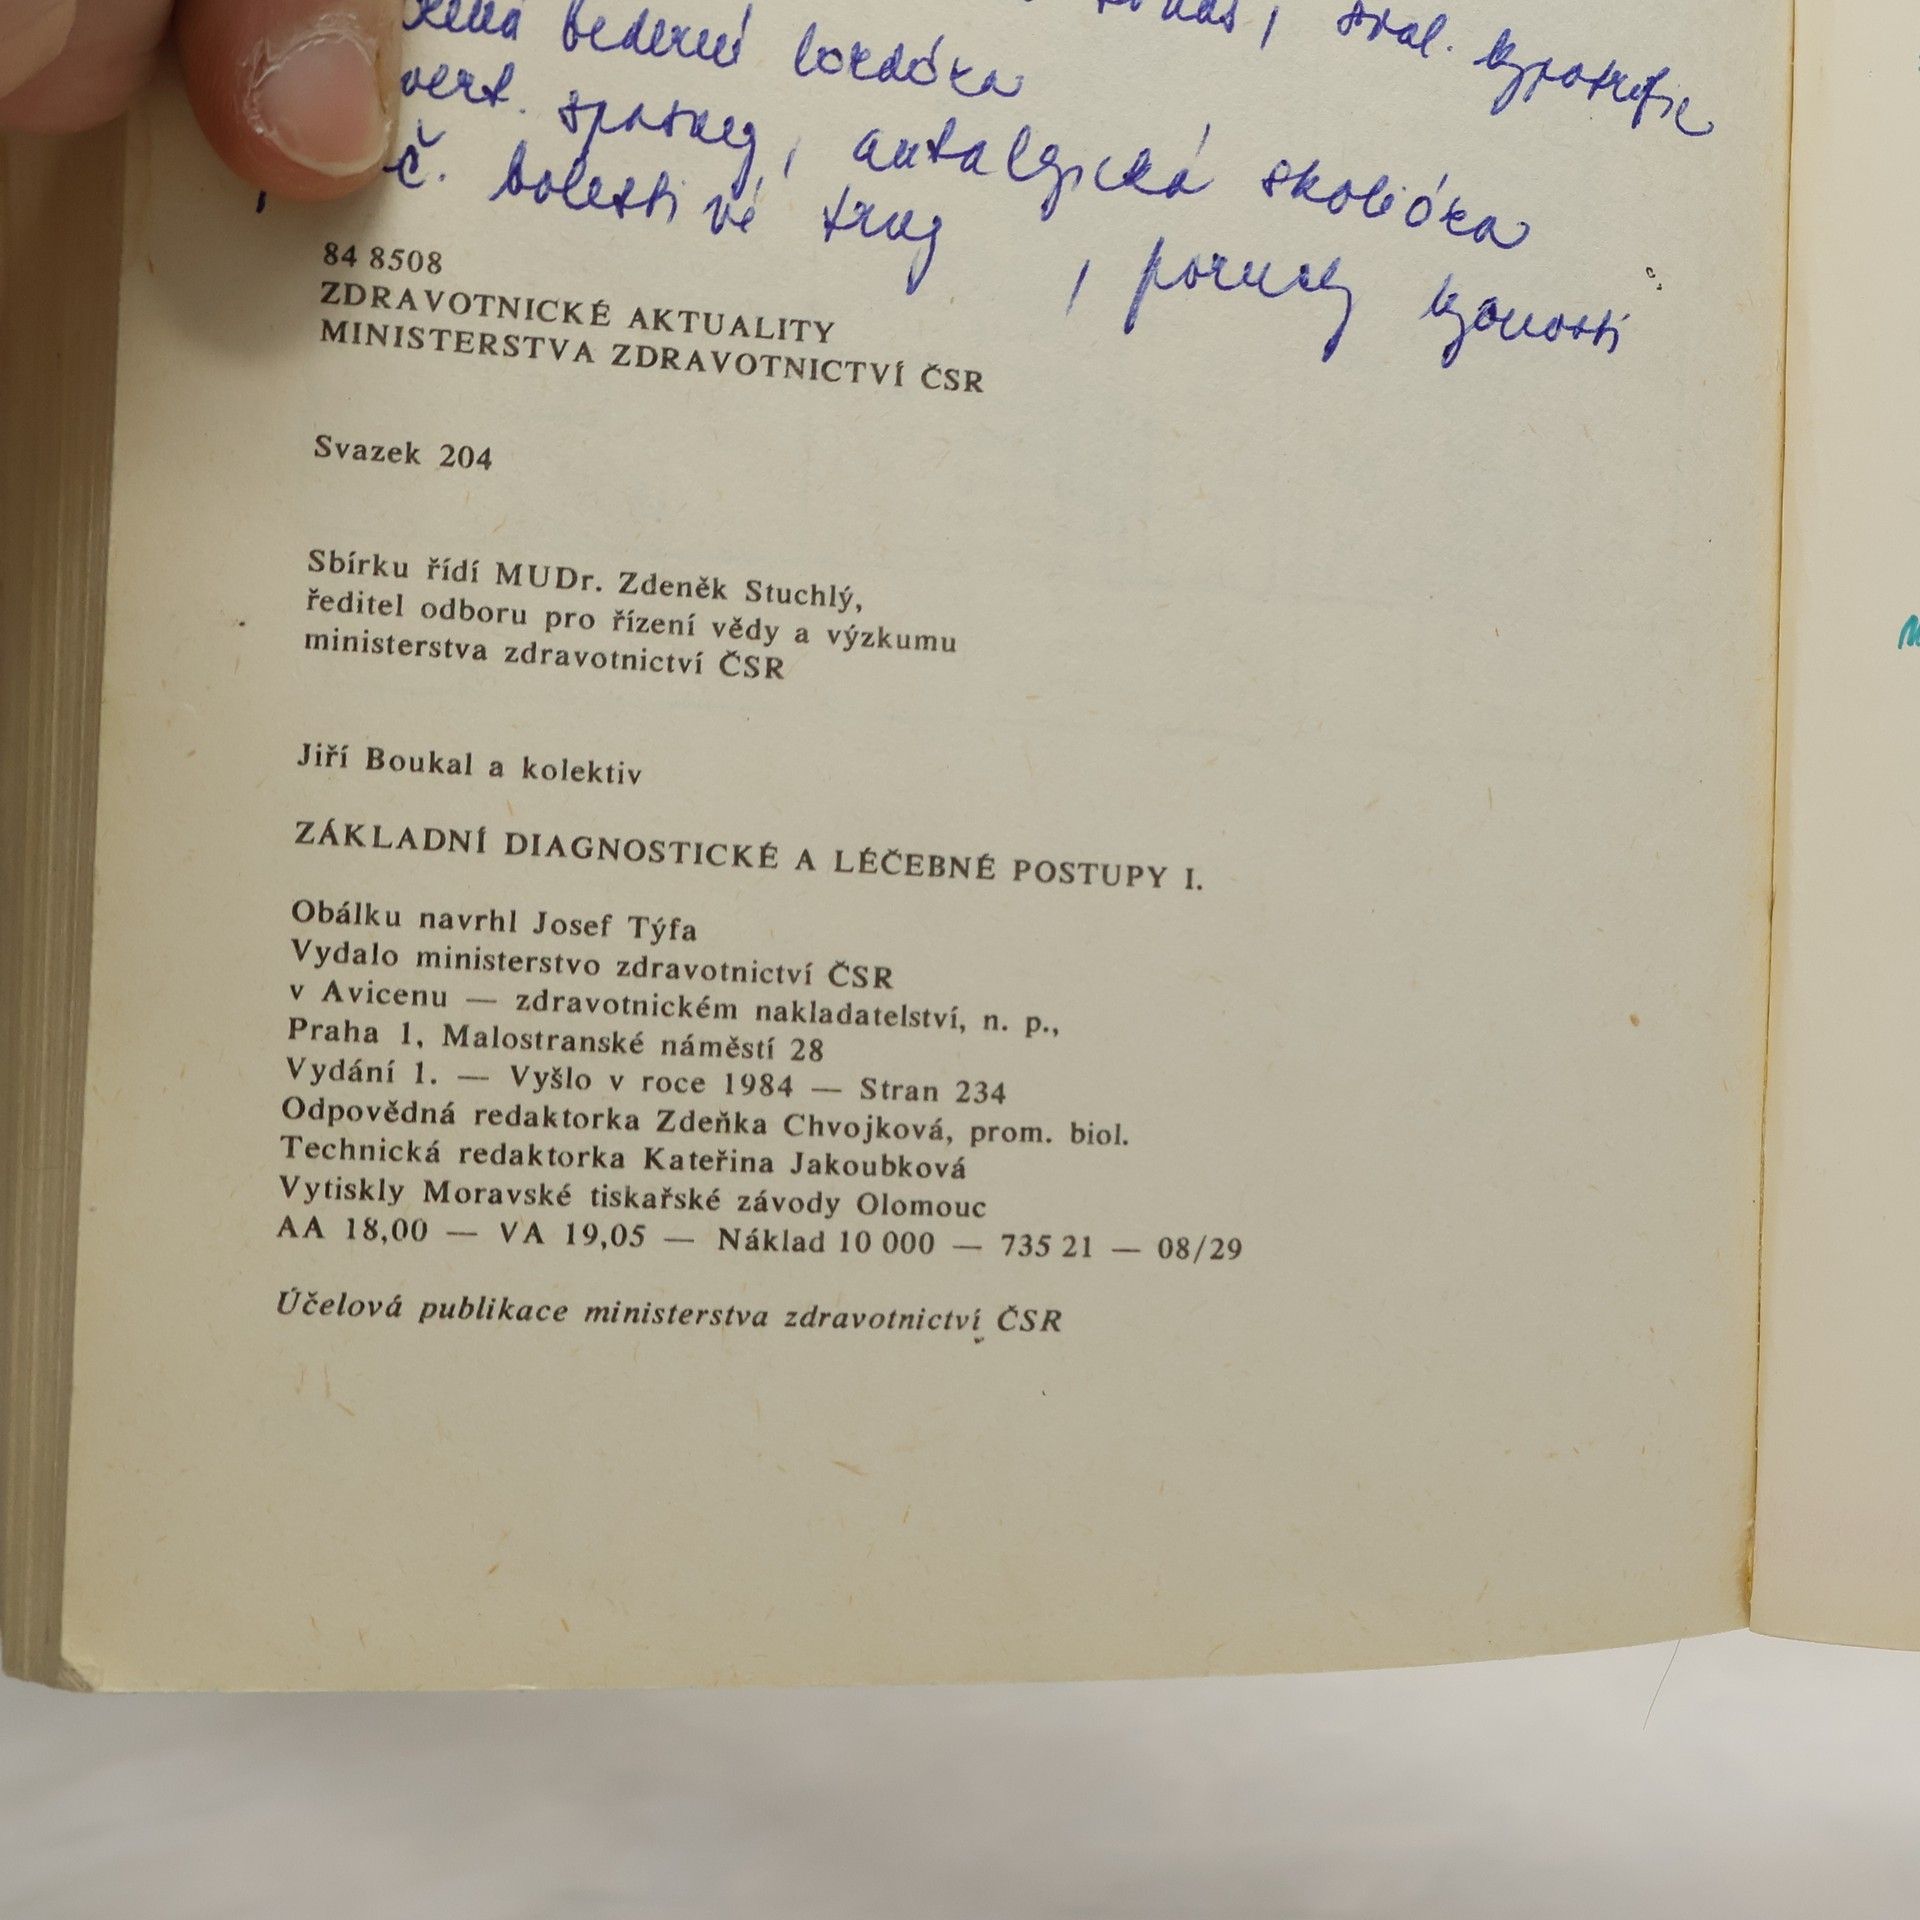 bederní lordóza
sval. hypotrofie
vert. spasmy, antalgická skolióza
č. bolestivé trny, poruchy hybnosti
84 8508
ZDRAVOTNICKÉ AKTUALITY
MINISTERSTVA ZDRAVOTNICTVÍ ČSR
Svazek 204
Sbírku řídí MUDr. Zdeněk Stuchlý,
ředitel odboru pro řízení vědy a výzkumu
ministerstva zdravotnictví ČSR
Jiří Boukal a kolektiv
ZÁKLADNÍ DIAGNOSTICKÉ A LÉČEBNÉ POSTUPY I.
Obálku navrhl Josef Týfa
Vydalo ministerstvo zdravotnictví ČSR
v Avicenu — zdravotnickém nakladatelství, n. p.,
Praha 1, Malostranské náměstí 28
Vydání 1. — Vyšlo v roce 1984 — Stran 234
Odpovědná redaktorka Zdeňka Chvojková, prom. biol.
Technická redaktorka Kateřina Jakoubková
Vytiskly Moravské tiskařské závody Olomouc
AA 18,00 — VA 19,05 — Náklad 10 000 — 735 21 — 08/29
Účelová publikace ministerstva zdravotnictví ČSR